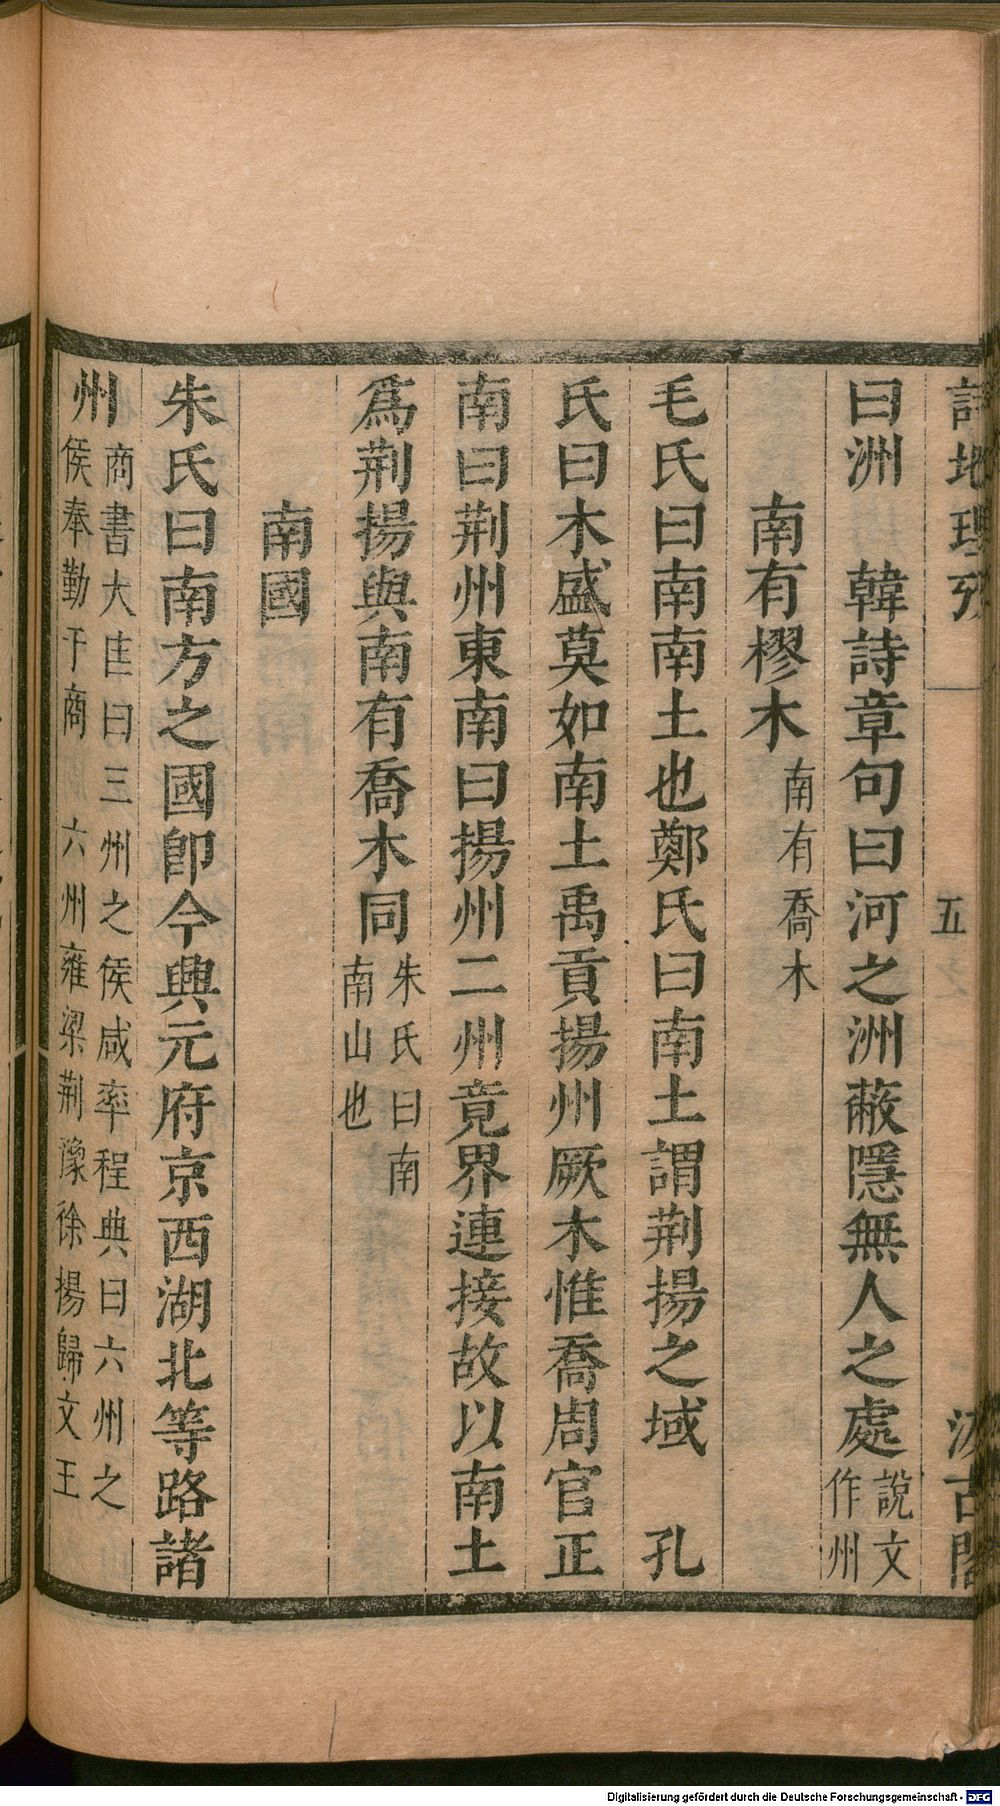 詩地理攷
五
汲古閣
曰洲　韓詩章句曰河之洲蔽隱無人之處說文作州
南有樛木南有喬木
毛氏曰南南土也鄭氏曰南土謂荆揚之域　孔
氏曰木盛莫如南土禹貢揚州厥木惟喬周官正
南曰荆州東南曰揚州二州竟界連接故以南土
爲荆揚與南有喬木同朱氏曰南南山也
南國
朱氏曰南方之國卽今興元府京西湖北等路諸
州商書大匡曰三州之侯咸率程典曰六州之侯奉勤于商　六州雍梁荆豫徐揚歸文王
Digitalisierung gefördert durch die Deutsche Forschungsgemeinschaft - DFG